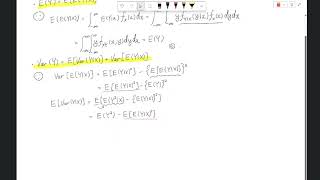 E(Y) = E[E(Y|X)]
∵ E[E(Y|X)] = ∫_{-∞}^{∞} E(Y|x) f_x(x) dx = ∫_{-∞}^{∞} ∫_{-∞}^{∞} y f_{Y|X}(y|x) f_x(x) dy dx
= ∫_{-∞}^{∞} ∫_{-∞}^{∞} y f_{Y,X}(x,y) dy dx = E(Y)
Var(Y) = E[Var(Y|X)] + Var[E(Y|X)]
∵ Var[E(Y|X)] = E[E(Y|X)²] - {E[E(Y|X)]}²
= E[E(Y|X)²] - {E(Y)}²
E[Var(Y|X)] = E[E(Y²|X) - {E(Y|X)}²]
= E(Y²) - E[E(Y|X)²]